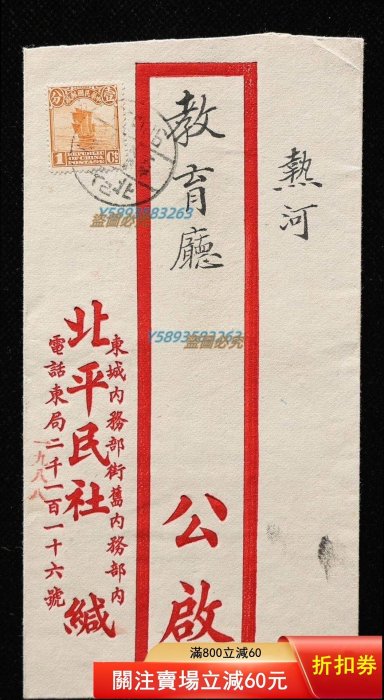 熱河
教育廳
公啟
東城內務部街舊內務部內
北平民社 緘
電話東局二千一百一十六號
一九八八
分 壹
1 Cs
REPUBLIC
OF CHINA
POSTAGE
北
Y5893583263
盜圖必究
Y5893583263
盜圖必究
滿800立減60
關注賣場立減60元
折扣券